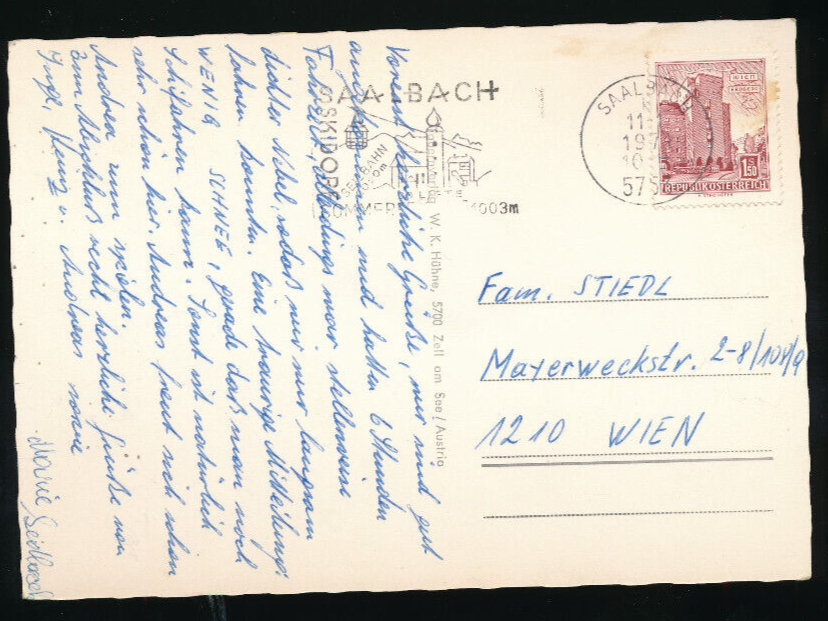 Vorerst herzliche Grüße, wir sind gut
angekommen und hatten 6 Stunden
Fahrzeit, allerdings war stellenweise
dichter Nebel, sodaß wir nur langsam
fahren konnten. Eine traurige Mitteilung:
WENIG SCHNEE, gerade daß man noch
Schifahren kann. Sonst ist natürlich
sehr schön hier. Andreas freut sich schon
Andrea zum spielen.
Zum Abschluß recht herzliche Grüße von
Inge, Heinz u. Andreas sowie
Marie
SAALBACH
SKIDORF
SEILBAHN
SOMMER
1003m
W. K. Hühne, 5700 Zell am See / Austria
SAALBACH
11
197
10
575
WIEN
1S50
REPUBLIK ÖSTERREICH
Fam. STIEDL
Mayerweckstr. 2-8/108/9
1210 WIEN